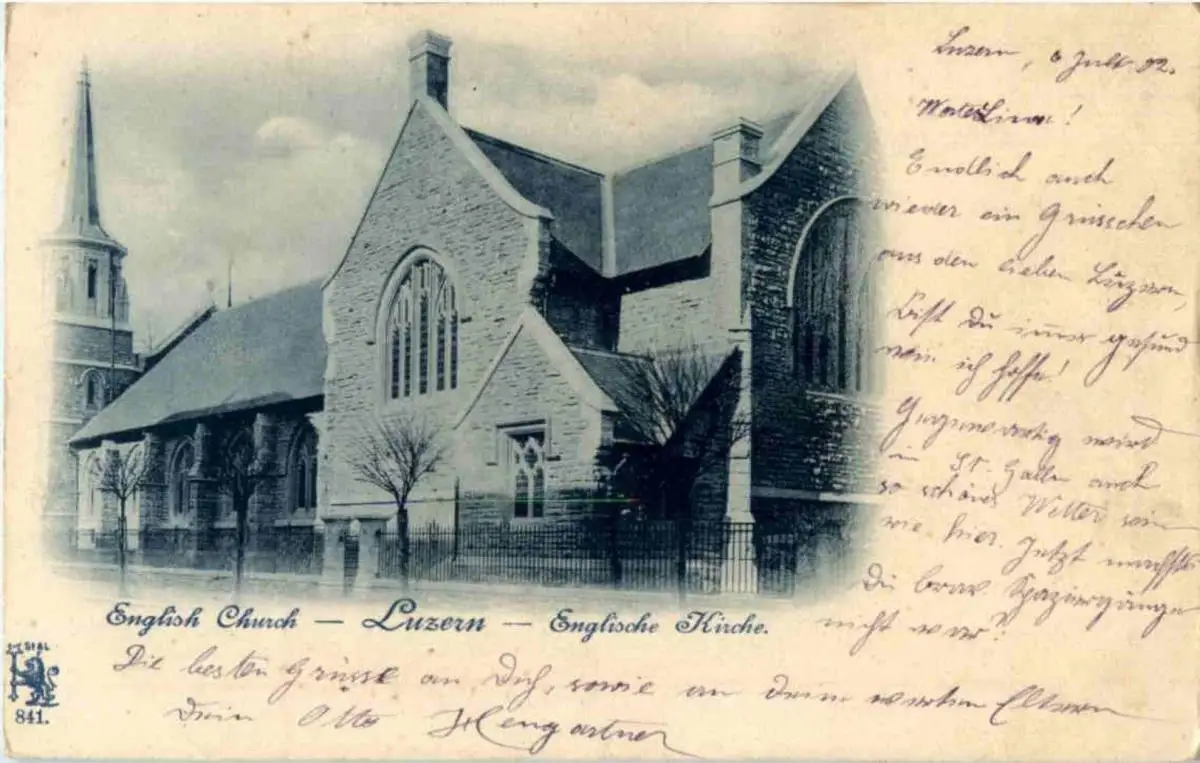 Luzern, 6 Juli 02.
Werte Lina!
Endlich auch
wieder ein Grüsschen
aus dem lieben Luzern,
Bist Du immer gesund
wie ich hoffe!
Gegenwärtig wird
in St. Gallen auch
so schönes Wetter sein
wie hier. Jetzt machst
Du brav Spaziergänge
nicht war?
English Church — Luzern — Englische Kirche.
Die besten Grüsse an Dich, sowie an deine werten Eltern
Dein Otto Hengartner
841.